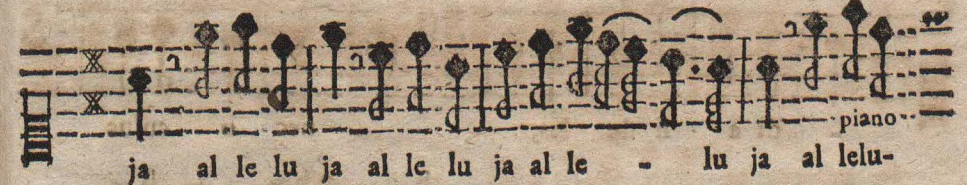 piano
ja al le lu ja al le lu ja al le - lu ja al lelu-